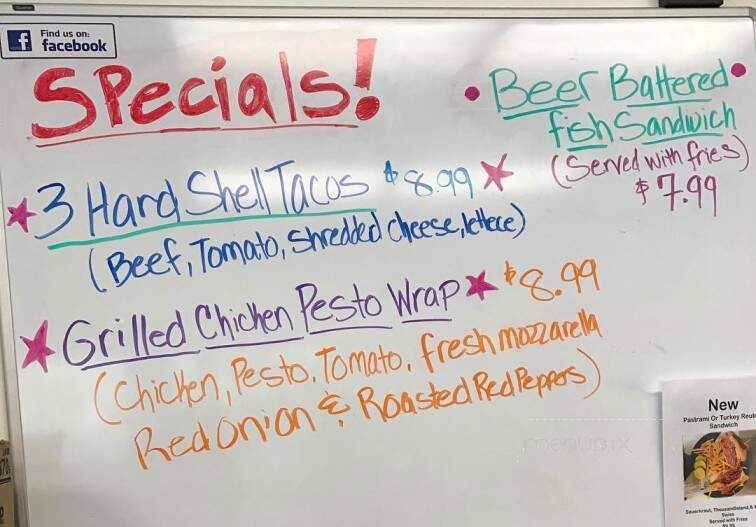 Find us on:
facebook
Specials!
3 Hard Shell Tacos $8.99
(Beef, Tomato, Shredded cheese, lettece)
Grilled Chicken Pesto Wrap $8.99
(Chicken, Pesto, Tomato, fresh mozzarella
Red Onion & Roasted Red Peppers)
Beer Battered
fish Sandwich
(Served with fries)
$7.99
New
Pastrami Or Turkey
Sandwich
Sauerkraut,
Swiss
Served with Fries